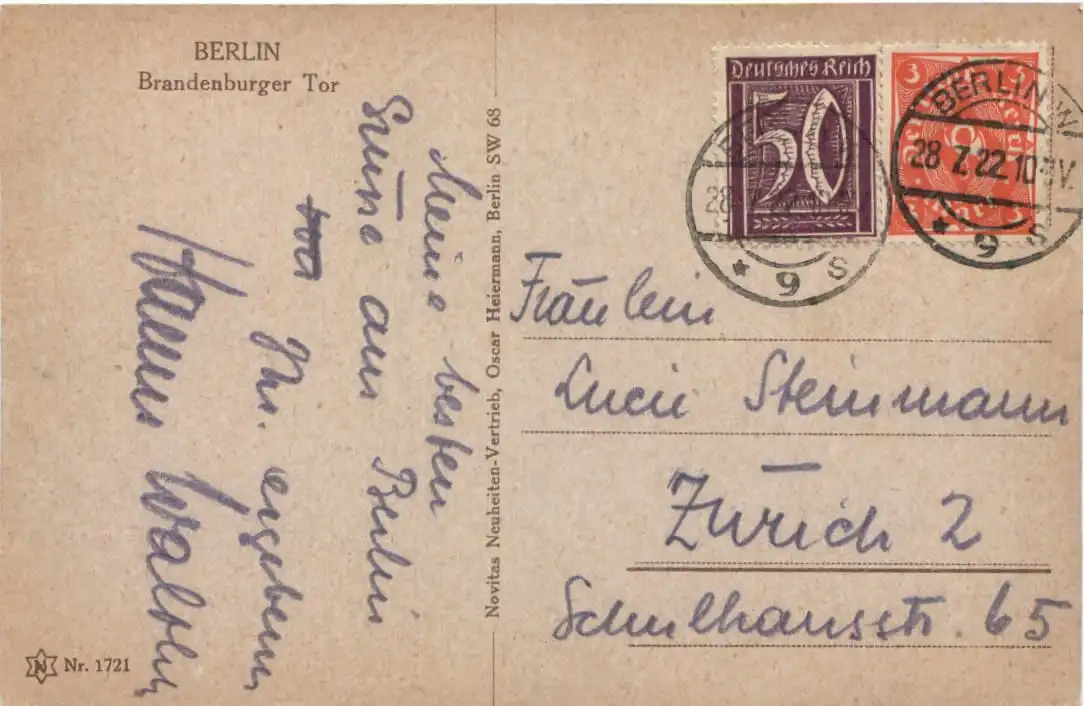 BERLIN
Brandenburger Tor
Meine besten
Grüße aus Berlin
Ihr ergebener
Hans
Nr. 1721
Novitas Neuheiten-Vertrieb, Oscar Heiermann, Berlin SW 68
Deutsches Reich
50
3 3
3 3
BERLIN W
28.7.22.10-11V.
* 9 s
28
* 9 s
Fräulein
Lucie Steinmann
Zürich 2
Schulhausstr. 65